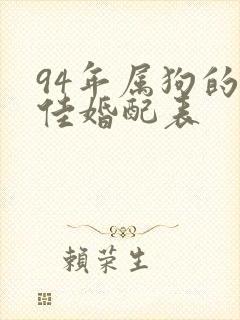 94年属狗的
佳婚配表
賴荣生